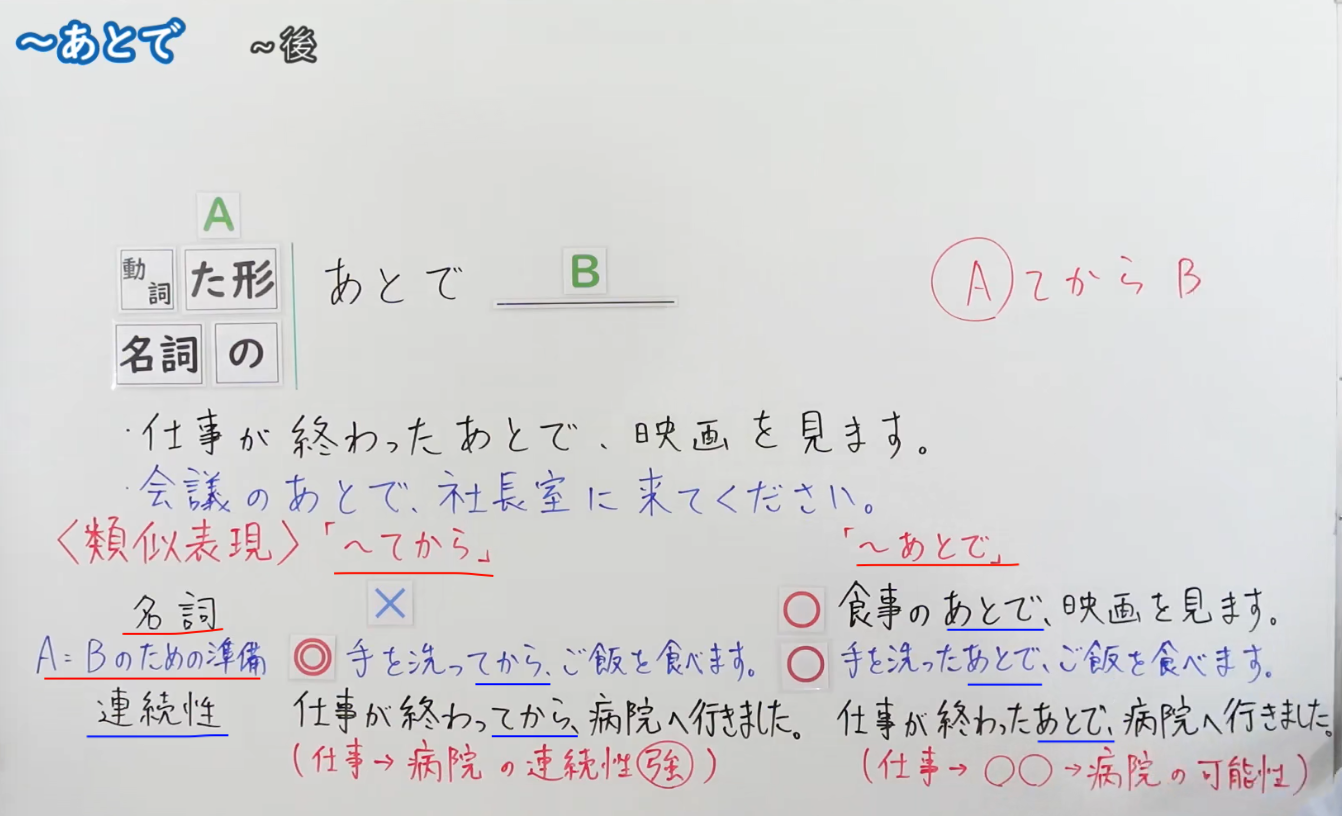 ～あとで ～後
A
動詞 た形 あとで B
名詞 の
Ⓐてから B
・仕事が終わったあとで、映画を見ます。
・会議のあとで、社長室に来てください。
〈類似表現〉「～てから」 「～あとで」
名詞 × ○ 食事のあとで、映画を見ます。
A=Bのための準備 ◎ 手を洗ってから、ご飯を食べます。 ○ 手を洗ったあとで、ご飯を食べます。
連続性 仕事が終わってから、病院へ行きました。 仕事が終わったあとで、病院へ行きました。
(仕事→病院の連続性強) (仕事→○○→病院の可能性)